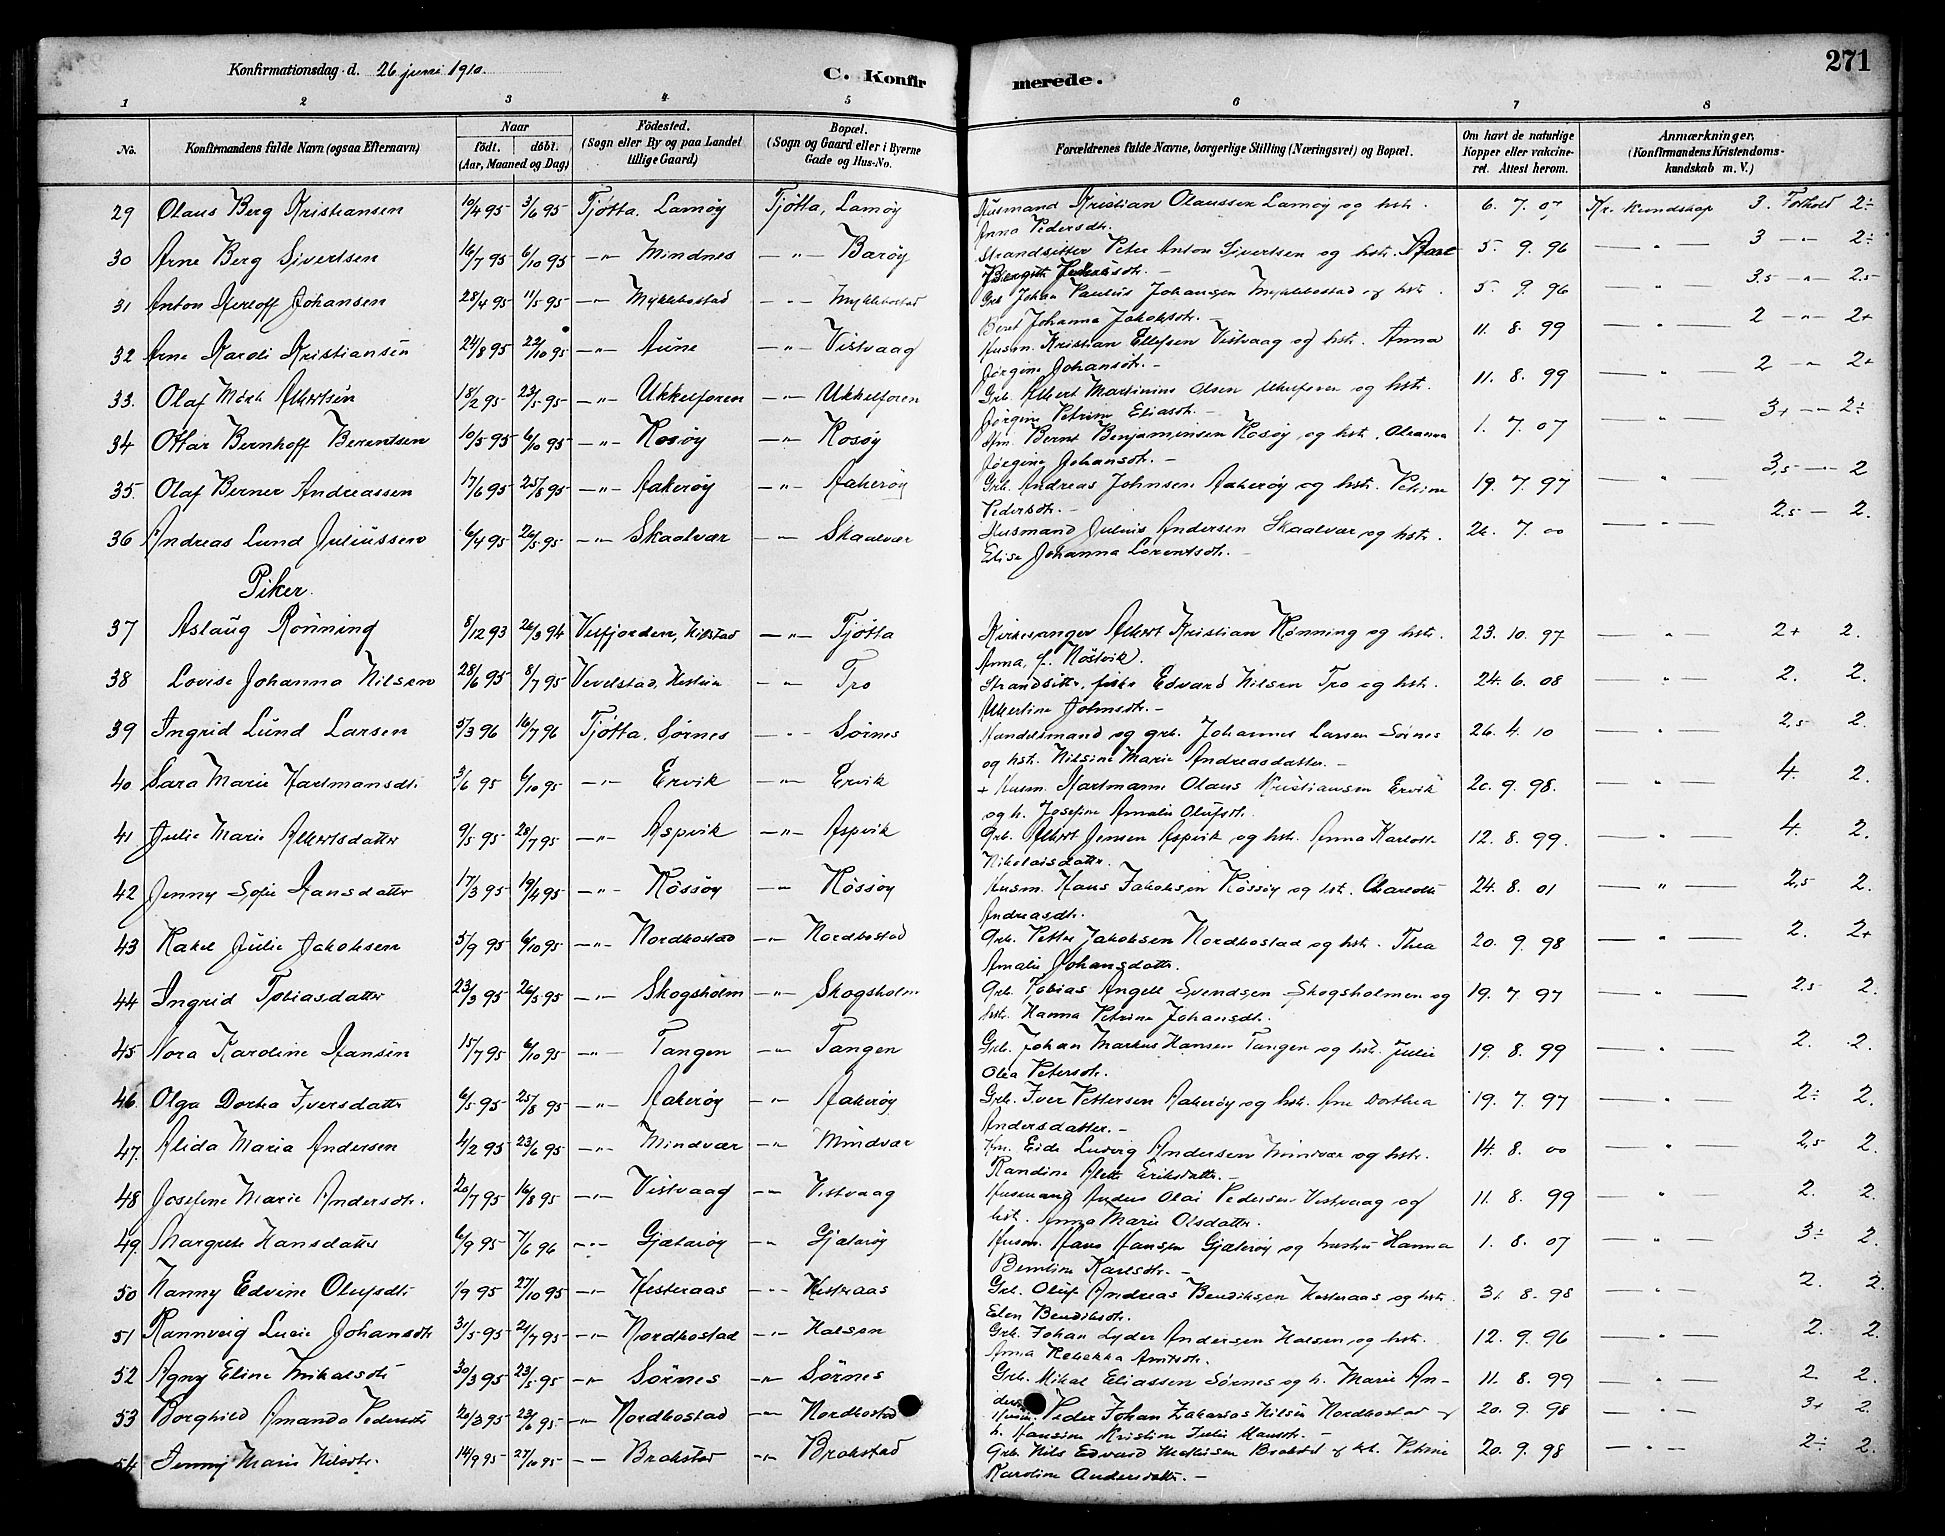 271
Konfirmationsdag d. 26 juni 1910.
C. Konfirmerede.
1 2 3 4 5 6 7 8
No. Konfirmandens fulde Navn (ogsaa Efternavn) Naar födt. döbt. (Aar, Maaned og Dag) Födested. (Sogn eller By og paa Landet tillige Gaard) Bopæl. (Sogn og Gaard eller i Byerne Gade og Hus-No. Forældrenes fulde Navne, borgerlige Stilling (Næringsvei) og Bopæl. Om havt de naturlige Kopper eller vakcineret. Attest herom. Anmærkninger. (Konfirmandens Kristendomskundskab m. V.)
29 Olaus Berg Kristiansen 10/4 95 3/6 95 Tjøtta, Lamøy Tjøtta, Lamøy Husmand Kristian Olaussen Lamøy og hstr. 6. 7. 07 Kr. kundskap 3. Forhold 2÷
Anna Pedersdtr.
30 Arne Berg Sivertsen 16/7 95 6/10 95 -"- Mindnes -"- Barøy Strandsitter Peter Anton Sivertsen og hstr. 5. 9. 96 -"- 3 -"- 2÷
31 Anton Herloff Johansen 28/4 95 11/5 95 -"- Mykkebostad -"- Mykkebostad Grb. Johan Paulus Johansen Mykkebostad og hstr. 5. 9. 96 -"- 3.5 -"- 2.5
Beret Johanna Jakobsdtr. -
32 Arne Karoli Kristiansen 24/8 95 22/10 95 -"- Aune -"- Vistvaag Husm. Kristian Ellefsen Vistvaag og hstr. Anna 11. 8. 99 -"- 2 -"- 2+
Jørgine Johansdtr. -
33. Olaf Albertsen 18/2 95 23/5 95 -"- Ukkelforen -"- Ukkelforen Grb. Albert Martinius Olsen og hst. 11. 8. 99 -"- 2 -"- 2+
Jørgine Petrine Eliasdtr. -
34 Ottar Bernhoff Berentsen 10/5 95 6/10 95 -"- Rosøy -"- Rosøy Bernt Benjaminsen Rosøy og hstr. 1. 7. 07 -"- 3+ -- 2÷
Jørgine Johansdtr. -
35. Olaf Berner Andreassen 17/6 95 25/8 95 -"- Aakerøy -"- Aakerøy Grb. Andreas Johnsen Aakerøy og hstr. Petrine 19. 7. 97 " 3,5 -- 2
Pedersdtr. -
36 Andreas Lund Juliussen 6/4 95 26/5 95 -"- Skaalvær -"- Skaalvær Husmand Julius Andersen Skaalvær og hstr. 26. 7. 00 -"- 2,5 - 2.
Elise Johanna Lorentsdtr. -
Piker.
37 Aslaug Rønning 8/12 93 26/3 94 Vefsjorden, -"- Tjøtta Kirkesanger Albert Kristian Rønning og hstr. 23. 10. 97 -"- 2+ 2.
Anna, f. Nöstvik.
38 Lovise Johanna Nilsen 28/6 95 8/7 95 Vevelstad, -"- Tro Strandsitter, fisker Edvard Nilsen Tro og hstr. 24. 6. 08 -"- 2. 2.
Albertine Johnsdtr. -
39 Ingrid Lund Larsen 5/3 96 16/7 96 Tjøtta, Sørnes -"- Sørnes Handelsmand og grb. Johannes Larsen Sørnes 26. 4. 10 -"- 2,5 2.
og hstr. Nilsine Marie Andreasdatter. -
40 Sara Marie Hartmansdtr. 3/6 95 6/10 95 -"- Ervik -"- Ervik + Husm. Hartmann Olaus Kristiansen Ervik 20. 9. 98. -"- 4. 2.
og h. Josefine Amalie Olufsdtr.
41 Julie Marie Albertsdatter 9/5 95 28/7 95 -"- Aspvik -"- Aspvik Grb. Albert Jensen Aspvik og hstr. Anna Karlotte 12. 8. 99. -"- 4. 2.
Nikolaisdatter.
42 Jenny Sofie Hansdatter 17/3 95 19/4 95 -"- Røssøy -"- Røssøy Husm. Hans Jakobsen Røssøy og hst. Charlotte 24. 8. 01 -"- 2,5 2.
Andreasdtr.
43 Rakel Julie Jakobsen 5/9 95 6/10 95 -"- Nordbostad -"- Nordbostad Grb. Petter Jakobsen Nordbostad og hstr. Thea 20. 9. 98 -"- 2. 2+
Amalie Johansdatter.
44 Ingrid Tobiasdatter 23/3 95 26/5 95 -"- Skogsholm -"- Skogsholm Grb. Tobias Angell Svendsen Skogsholmen og 19. 7. 97 -"- 2,5 2.
hstr. Hanna Petrine Johansdtr.
45 Nora Karoline Hansen 15/7 95 6/10 95 -"- Tangen -"- Tangen Grb. Johan Markus Hansen Tangen og hstr. Julie 19. 8. 99 -"- 2. 2.
Olea Petersdtr.
46. Olga Dorthea Iversdatter 6/5 95 25/8 95 -"- Aakerøy -"- Aakerøy Grb. Iver Pettersen Aakerøy og hstr. Ane Dorthea 19. 7. 97 -"- 2÷ 2.
Andersdatter. -
47. Alida Maria Andersen 4/2 95 23/6 95 -"- Mindvær -"- Mindvær Eide Ludvig Andersen Mindvær og hstr. 14. 8. 00 -"- 2,5 2.
Randine Alette Eriksdatter. -
48 Josefine Marie Andersdtr. 20/7 95 16/8 95 -"- Vistvaag -"- Vistvaag Husmand Anders Olai Pedersen Vistvaag og 11. 8. 99 -"- 2. 2.
hst. Anna Marie Olsdatter.
49. Margrete Hansdatter 6/9 95 7/6 96 -"- Gjæterøy -"- Gjæterøy Husm. Hans Hansen Gjæterøy og hustru Hanna 1. 8. 07 -"- 3÷ 2.
Karlsdtr. -
50 Nanny Edvine Olufsdtr. 1/9 95 27/10 95 -"- Hesteraas -"- Hesteraas Grb. Oluf Andreas Bendiksen Hesteraas og hstr. 31. 8. 98 -"- 2. 2.
Elen Bendiksdtr.
51 Rannveig Lucie Johansdtr. 31/5 95 21/7 95 -"- Nordbostad -"- Halsen Grb. Johan Lyder Andersen Halsen og hstr. 12. 9. 96 -"- 2. 2.
Anna Rebekka Arntsdtr.
52 Agny Eline Mikalsdtr. 30/3 95 23/5 95 -"- Sørnes -"- Sørnes Grb. Mikal Eliassen Sørnes og h. Marie An- 11. 8. 99 -"- 2 2.
53 Borghild Amanda Pedersdtr. 20/3 95 23/6 95 -"- Nordbostad -"- Nordbostad Peder Johan Zakarias Nilsen Nordbostad og 20. 9. 98 -"- 3+ 2.
h. Hansine Kristine Julie Hansdtr. -
54 Jenny Marie Nilsdtr. 14/9 95 27/10 95 -"- Brakstad -"- Brakstad Grb. Nils Edvard Mathisen Brakstad og hst. Petrine 20. 9. 98 -"- 2÷ 2.
Karoline Andersdatter. -